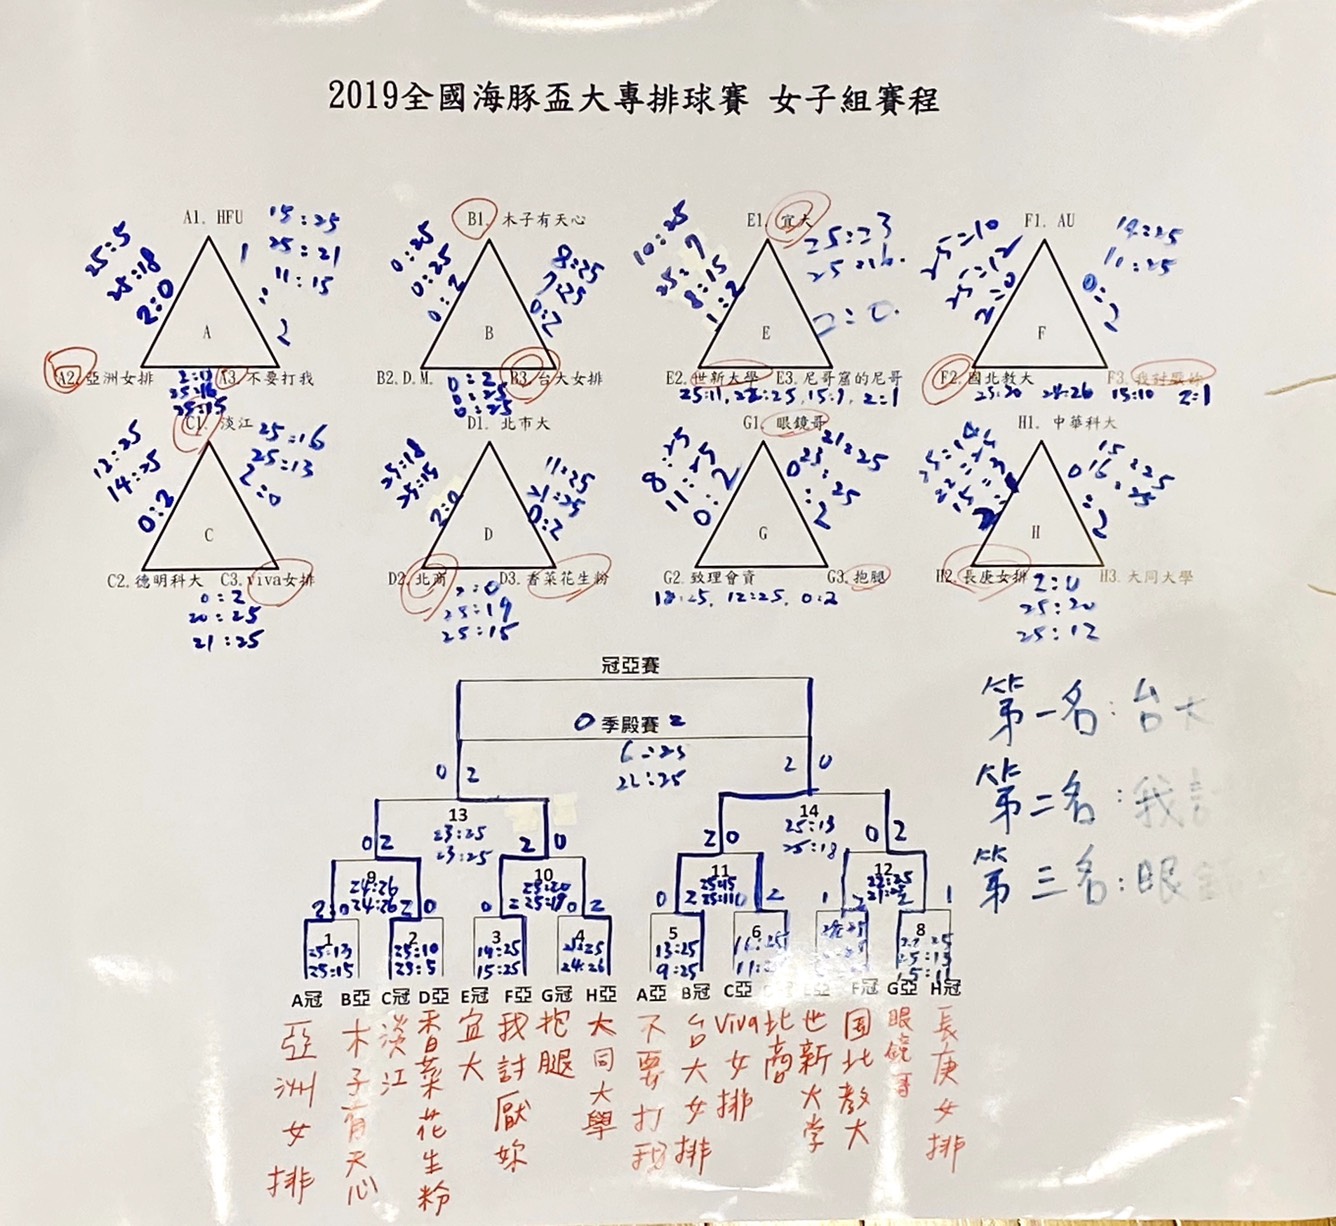 2019全國海豚盃大專排球賽 女子組賽程
A1. HFU
15:25
25:21
11:15
1:2
25:5
25:18
2:0
A
A2. 亞洲女排
A3. 不要打我
25:16
25:15
B1. 木子有天心
0:25
0:25
0:2
8:25
7:25
0:2
B
B2. D.M.
B3. 台大女排
0:2
0:25
0:25
E1. 宜大
10:25
8:15
1:2
25:23
25:16
2:0
E
E2. 世新大學
E3. 尼哥窟的尼哥
25:11, 22:25, 15:9, 2:1
F1. AU
25:10
25:12
2:0
14:25
11:25
0:2
F
F2. 國北教大
F3. 我討厭妳
25:20 24:26 15:10 2:1
C1. 淡江
12:25
14:25
0:2
25:16
25:13
2:0
C
C2. 德明科大
C3. viva女排
0:2
20:25
21:25
D1. 北市大
25:18
25:15
2:0
11:25
21:25
0:2
D
D2. 北商
D3. 香菜花生粉
2:0
25:19
25:15
G1. 眼鏡哥
8:25
11:25
0:2
21:25
23:25
0:2
G
G2. 致理會資
G3. 抱腿
18:25, 12:25, 0:2
H1. 中華科大
25:14
15:25
16:25
0:2
H
H2. 長庚女排
H3. 大同大學
2:0
25:20
25:12
冠亞賽
0 季殿賽 2
6:25
22:25
0 2
2 0
第一名:台大
第二名:我討
第三名:眼
13
23:25
23:25
14
25:13
25:18
0 2
2 0
2 0
0 2
9
24:26
24:26
10
25:20
25:18
11
25:15
12
22:25
2 0
2 0
0 2
0 2
0 2
2
1 2
1
1
25:13
25:15
2
25:10
25:5
3
14:25
15:25
4
24:26
5
13:25
9:25
6
8
A冠 B亞 C冠 D亞 E冠 F亞 G冠 H亞 A亞 B冠 C亞 D冠 E亞 F冠 G亞 H冠
亞洲女排
木子有天心
淡江
香菜花生粉
宜大
我討厭妳
抱腿
大同大學
不要打我
台大女排
Viva女排
北商
世新大学
國北教大
眼鏡哥
長庚女排